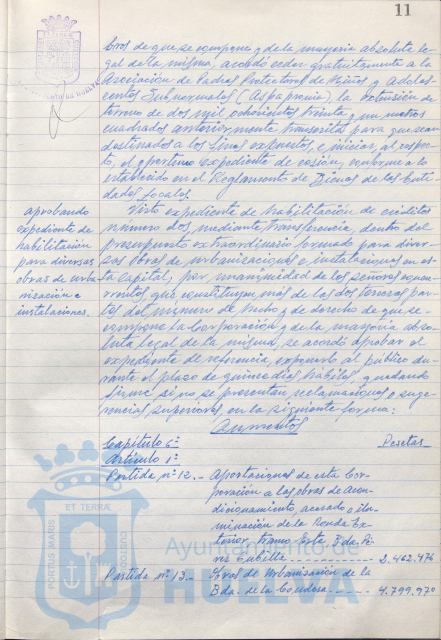 11
bros de que se compone y de la mayoria absoluta le-
gal de la misma, acordó ceder gratuitamente a la
Asociación de Padres Protectores de Niños y Adoles-
centes Subnormales (Aspapronia), la extensión de
terreno de dos mil ochocientos treinta y un metros
cuadrados anteriormente transcrita para que sean
destinados a los fines expuestos, e iniciar, al respec-
to, el oportuno expediente de cesión, conforme a lo
establecido en el Reglamento de Bienes de las Enti-
dades Locales.
aprobando
expediente de
habilitación
para diversas
obras de urba-
nización e
instalaciones.
Visto expediente de habilitación de créditos
número dos, mediante transferencia, dentro del
presupuesto extraordinario formado para diver-
sas obras de urbanizaciones e instalaciones en es-
ta Capital, por unanimidad de los señores concu-
rrentes que constituyen más de las dos terceras par-
tes del número de hecho y de derecho de que se
compone la Corporación y de la mayoria abso-
luta legal de la misma, se acordó aprobar el
expediente de referencia, exponerlo al público du-
rante el plazo de quince dias hábiles, quedando
firme si no se presentan reclamaciones o suge-
rencias superiores, en la siguiente forma:
Aumentos
Capítulo 6º Pesetas
Artículo 1º
Partida nº 12.- Aportaciones de esta Cor-
poración a las obras de acon-
dicionamiento, acerado e ilu-
minación de la Ronda Ex-
terior, tramo Este Bda. Pi-
res Cubilla 2.462.476
Partida nº 13.- Obras de Urbanización de la
Bda. de la 4.799.970
PORTUS MARIS ET TERRAE CUSTODIA
Ayuntamiento de
HUELVA